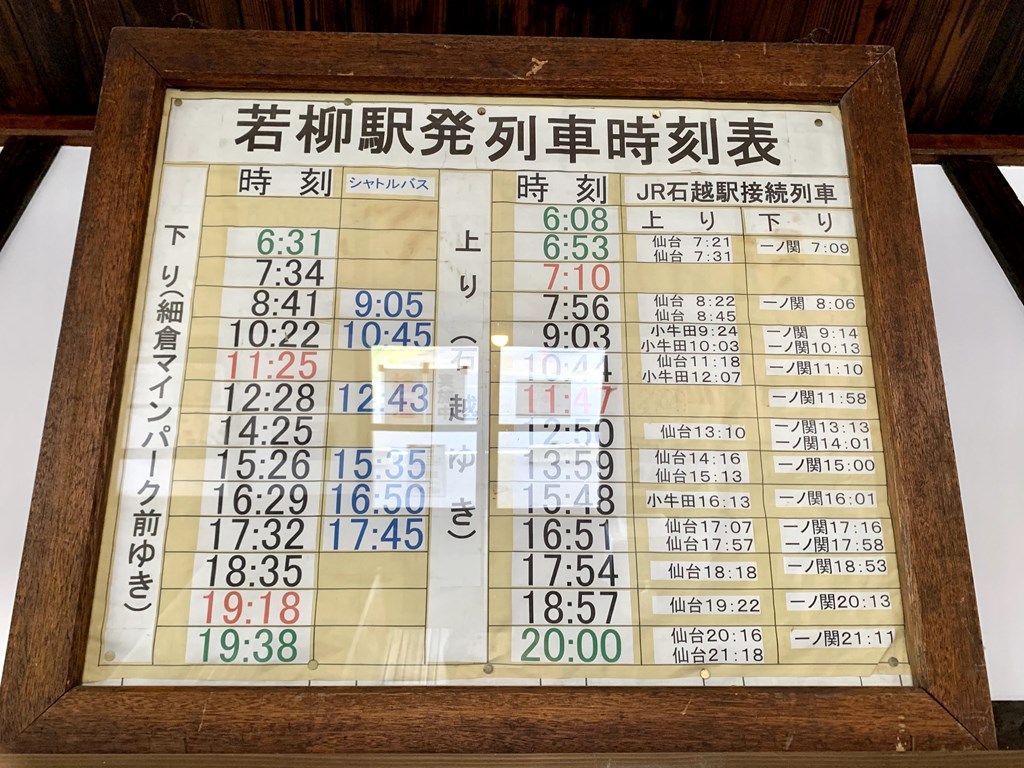 若柳駅発列車時刻表
下り(細倉マインパーク前ゆき)
時刻 シャトルバス
6:31
7:34
8:41 9:05
10:22 10:45
11:25
12:28 12:43
14:25
15:26 15:35
16:29 16:50
17:32 17:45
18:35
19:18
19:38
上り(石越ゆき)
時刻 JR石越駅接続列車
上り 下り
6:08
6:53 仙台 7:21 一ノ関 7:09
仙台 7:31
7:10
7:56 仙台 8:22 一ノ関 8:06
仙台 8:45
9:03 小牛田9:24 一ノ関 9:14
小牛田10:03 一ノ関10:13
10:44 仙台11:18 一ノ関11:10
小牛田12:07
11:47 一ノ関11:58
12:50 仙台13:10 一ノ関13:13
一ノ関14:01
13:59 仙台14:16 一ノ関15:00
仙台15:13
15:48 小牛田16:13 一ノ関16:01
16:51 仙台17:07 一ノ関17:16
仙台17:57 一ノ関17:58
17:54 仙台18:18 一ノ関18:53
18:57 仙台19:22 一ノ関20:13
20:00 仙台20:16 一ノ関21:11
仙台21:18